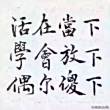 活在當下
學會放下
偶尔傻下